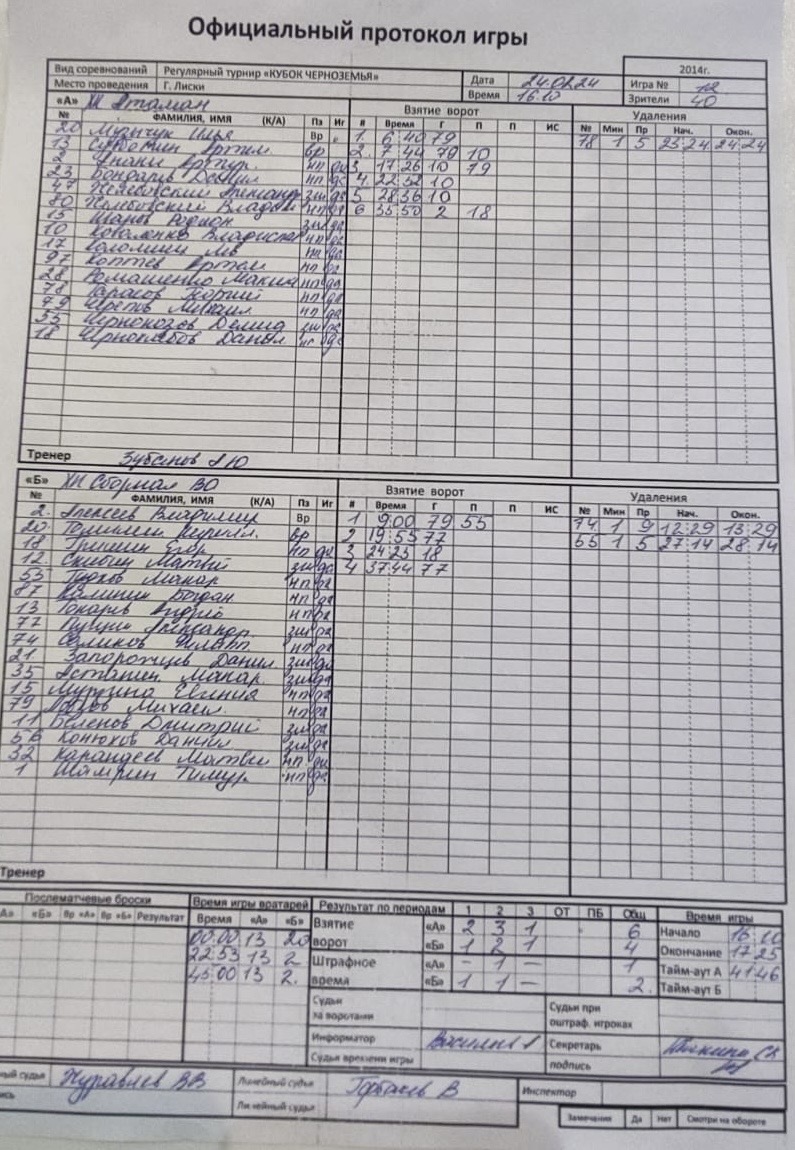 Официальный протокол игры
2014г.
Вид соревнований Регулярный турнир «КУБОК ЧЕРНОЗЕМЬЯ» Дата 24.02.24 Игра № 12
Место проведения Г. Лиски Время 16.10 Зрители 40
«А» ХК Атаман Взятие ворот Удаления
№ ФАМИЛИЯ, ИМЯ (К/А) Пз Иг # Время Г П П ИС № Мин Пр Нач. Окон.
20 Музычук Илья Вр 1. 6 40 79 78 1 5 23:24 24:24
13 Артем вр 2. 7 49 79 10
2 Артур нп да 3 17 26 10 79
23 Бондарев нп да 4. 22 52 10
47 Александр зщ да 5 28 36 10
80 нп да 6 35 50 2 18
15 Шаров Родион зщ да
10 Коваленко Владислав нп да
17 Коломиец Лев нп да
97 Коптев Артем нп да
28 Ромащенко Максим нп да
78 Тарасов Георгий нп да
79 Михаил нп да
55 Чернокозов Демид зщ да
18 Данил нп да
Тренер Зубанов
«Б» ХК Сборная ВО Взятие ворот Удаления
№ ФАМИЛИЯ, ИМЯ (К/А) Пз Иг # Время Г П П ИС № Мин Пр Нач. Окон.
2. Алексеев Владимир Вр 1 9:00 79 55 74 1 9 12:29 13:29
20 Кирилл вр 2 19:55 77 55 1 5 27:14 28:14
18 Гришин Егор нп да 3 24 23 18
12 Матвей зщ да 4 37:44 77
55 Макар нп да
87 Калинин Богдан нп да
13 Токарев Андрей нп да
77 Пущин Александр зщ да
74 Филипп нп да
21 Запорожцев Данил зщ да
35 Астанин Макар зщ да
15 Мурзина Евгения нп да
79 Михаил нп да
11 Беленов Дмитрий зщ да
56 Конюхов Даниил зщ да
32 Карандеев Матвей нп да
1 Шамрин Тимур нп да
Тренер
Послематчевые броски Время игры вратарей Результат по периодам 1 2 3 ОТ ПБ Общ Время игры
«А» «Б» Вр «А» Вр «Б» Результат Время «А» «Б» Взятие ворот «А» 2 3 1 6 Начало 16 10
00:00 13 20 «Б» 1 2 1 4 Окончание 17 25
22 53 13 2 Штрафное время «А» – 1 – 1 Тайм-аут А 41 46
45 00 13 2. «Б» 1 1 – 2. Тайм-аут Б
Судьи за воротами Судьи при оштраф. игроках
Информатор Секретарь
Судья времени игры подпись
судья Журавлев ВВ Линейный судья Горбачев В Инспектор
Линейный судья
Замечания Да Нет Смотри на обороте